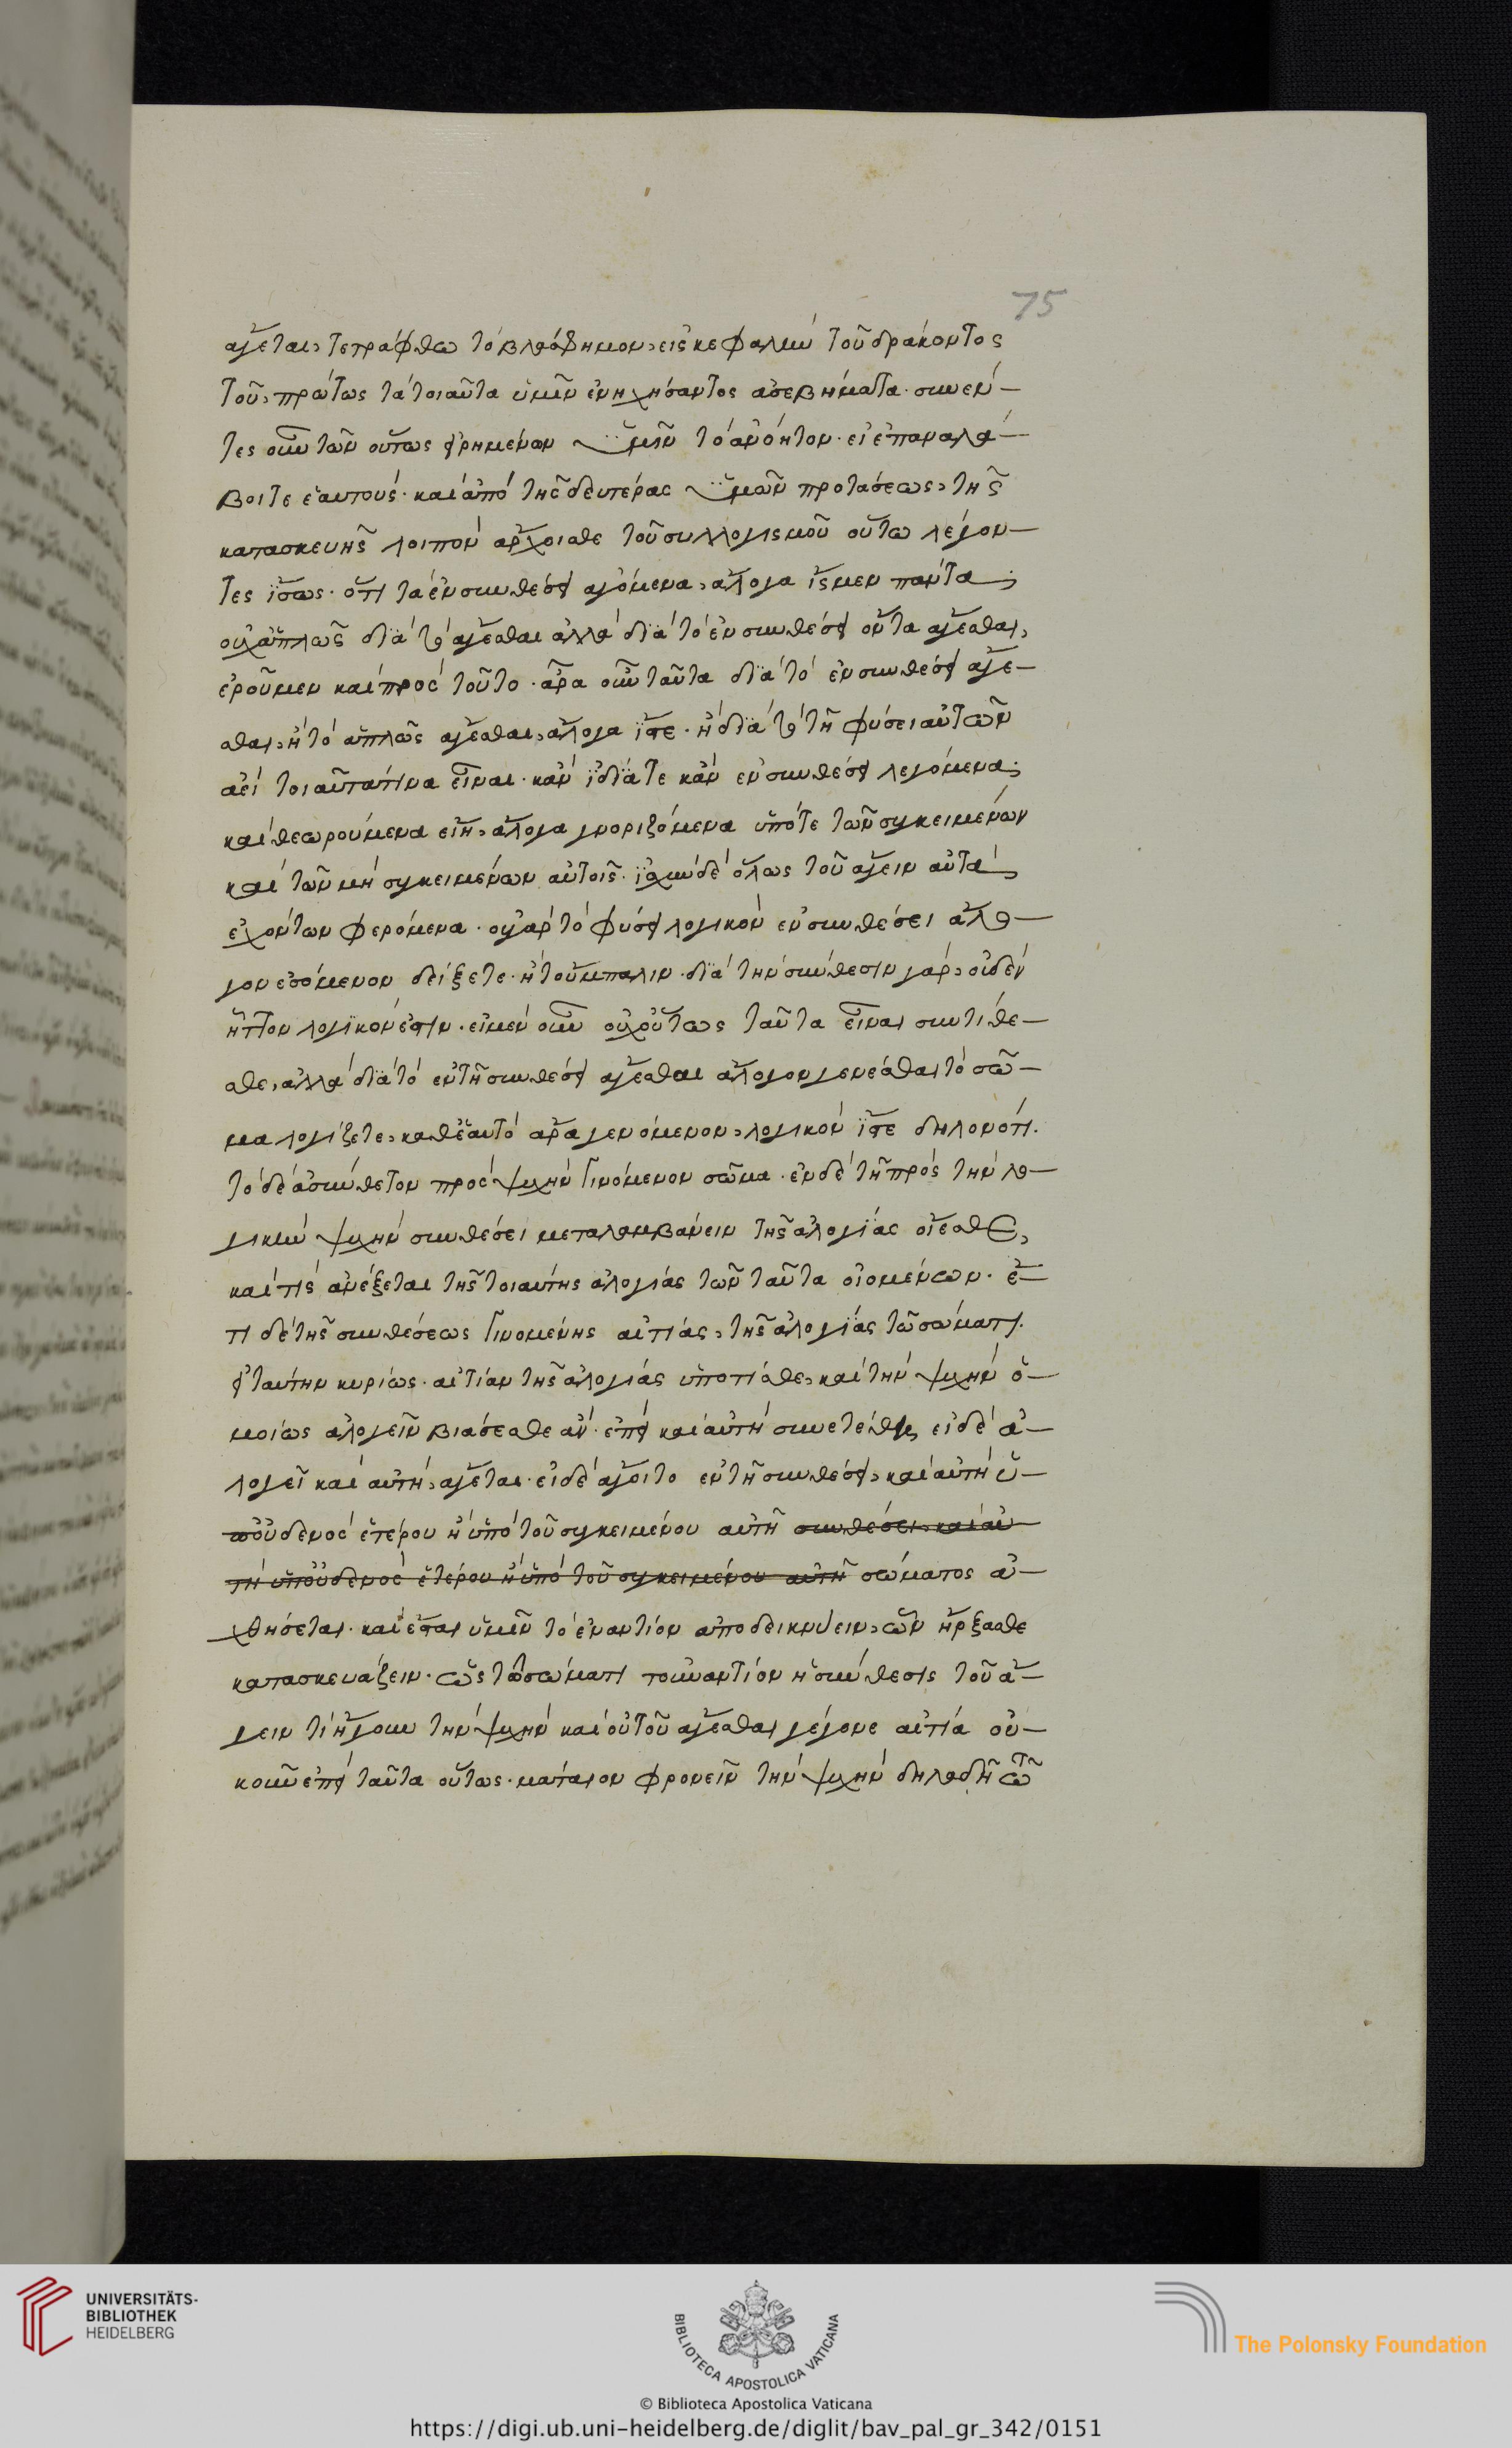 75
ἄγεται, τετράφθω τὸ βλάσφημον, εἰς κεφαλὴν τοῦ δράκοντος
τοῦ, πρώτως τὰ τοιαῦτα ὑμῖν ἐνηχήσαντος ἀσεβήματα. συνέν-
τες οὖν τῶν οὕτως εἰρημένων ὑμῖν τὸ ἀνόητον. εἰ ἐπαναλά-
βοιτε ἑαυτούς. καὶ ἀπὸ τῆς δευτέρας ὑμῶν προτάσεως, τῆς
κατασκευῆς λοιπὸν ἄρχοισθε τοῦ συλλογισμοῦ οὕτω λέγον-
τες ἴσως. ὅτι τὰ ἐν συνθέσει ἀγόμενα, ἄλογα ἴσμεν πάντα,
οὐχ ἁπλῶς διὰ τὸ ἄγεσθαι ἀλλὰ διὰ τὸ ἐν συνθέσει ὄντα ἄγεσθαι,
ἐροῦμεν καὶ πρὸς τοῦτο. ἆρα οὖν ταῦτα διὰ τὸ ἐν συνθέσει ἄγε-
σθαι, ἢ τὸ ἁπλῶς ἄγεσθαι, ἄλογα ἴστε. ἢ διὰ τὸ τῆ φύσει αὐτῶν
ἀεὶ τοιαῦτα τινα εἶναι. κἂν ἰδία τε κἂν ἐν συνθέσει λεγόμενα,
καὶ θεωρούμενα εἴη, ἄλογα γνοριζόμενα ὑπό τε τῶν συγκειμένων
καὶ τῶν μὴ συγκειμένων αὐτοῖς. ἰσχὺν δὲ ὅλως τοῦ ἄγειν αὐτὰ,
ἐχόντων φερόμενα. οὐ γὰρ τὸ φύσει λογικὸν ἐν συνθέσει ἄλο-
γον ἐσόμενον δείξετε. ἢ τοὔμπαλιν. διὰ τὴν σύνθεσιν γὰρ, οὐδὲν
ἧττον λογικόν ἐστιν. εἰ μὲν οὖν οὐχ οὕτως ταῦτα εἶναι συντίθε-
σθε, ἀλλὰ διὰ τὸ ἐν τῆ συνθέσει ἄγεσθαι ἄλογον γενέσθαι τὸ σῶ-
μα λογίζετε, καθ' ἑαυτὸ ἄρα γενόμενον, λογικὸν ἴστε δηλονότι.
τὸ δὲ ἀσύνθετον πρὸς ψυχὴν γινόμενον σῶμα. ἐν δὲ τῆ πρὸς τὴν λο-
γικὴν ψυχὴν συνθέσει μεταλαμβάνειν τῆς ἀλογίας οἴεσθε,
καὶ τίς ἀνέξεται τῆς τοιαύτης ἀλογίας τῶν ταῦτα οἰομένων. ἔ-
τι δὲ τῆς συνθέσεως γινομένης αἰτίας, τῆς ἀλογίας τῶ σώματι.
εἰ ταύτην κυρίως. αἰτίαν τῆς ἀλογίας ὑποτίθεσθε, καὶ τὴν ψυχὴν ὁ-
μοίως ἀλογεῖν βιάσεσθε ἄν. ἐπεὶ καὶ αὐτὴ συνετέθη, εἰ δὲ ἀ-
λογεῖ καὶ αὐτὴ, ἄγεται. εἰ δὲ ἄγοιτο ἐν τῆ συνθέσει, καὶ αὐτὴ ὑ-
π' οὐδενὸς ἑτέρου ἢ ὑπὸ τοῦ συγκειμένου αὐτῆ συνθέσει, καὶ αὐ-
τὴ ὑπ' οὐδενὸς ἑτέρου ἢ ὑπὸ τοῦ συγκειμένου αὐτῆ σώματος ἀ-
χθήσεται. καὶ ἔσται ὑμῖν τὸ ἐναντίον ἀποδεικνύειν, ὧν ἤρξασθε
κατασκευάζειν. ὡς τῶ σώματι τοὐναντίον ἡ σύνθεσις τοῦ ἄ-
γειν τι ἤγουν τὴν ψυχὴν καὶ οὐ τοῦ ἄγεσθαι γέγονε αἰτία οὐ-
κοῦν ἐπεὶ ταῦτα οὕτως. μάταιον φρονεῖν τὴν ψυχὴν δηλαδὴ
UNIVERSITÄTS-
BIBLIOTHEK
HEIDELBERG
BIBLIOTECA APOSTOLICA VATICANA
The Polonsky Foundation
© Biblioteca Apostolica Vaticana
https://digi.ub.uni-heidelberg.de/diglit/bav_pal_gr_342/0151